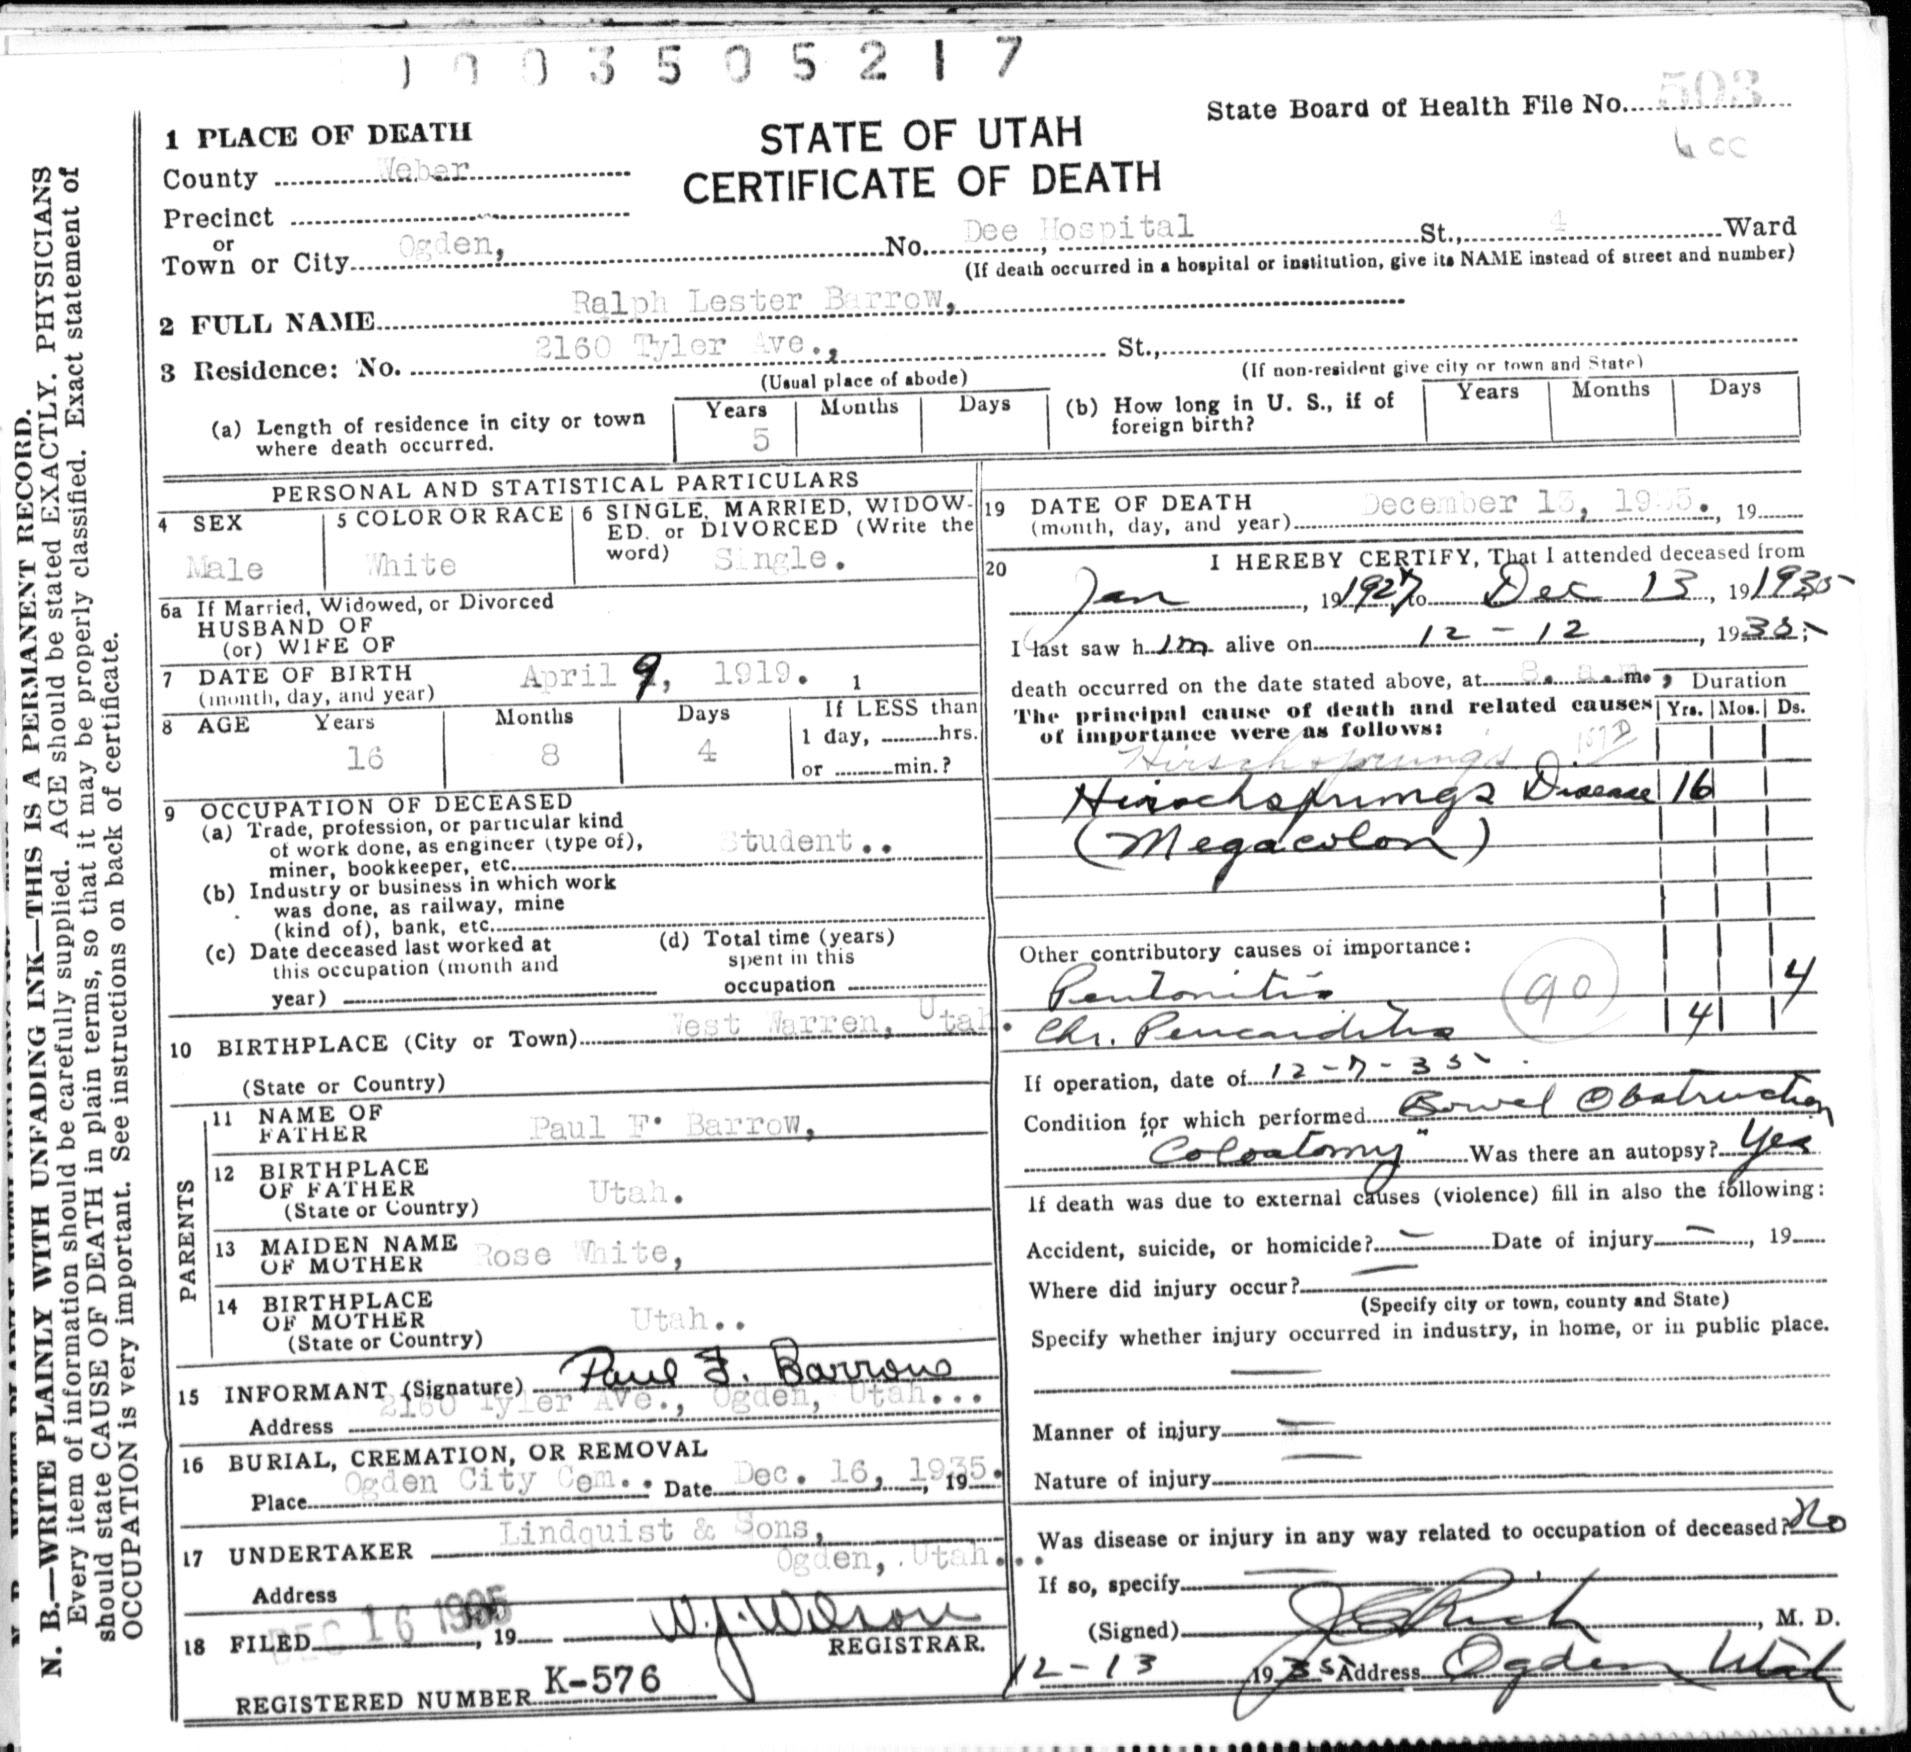 1003505217
State Board of Health File No. 503
6 cc
1 PLACE OF DEATH
STATE OF UTAH
CERTIFICATE OF DEATH
County Weber
Precinct
or
Town or City Ogden, No. Dee Hospital St., 4 Ward
(If death occurred in a hospital or institution, give its NAME instead of street and number)
2 FULL NAME Ralph Lester Barrow,
3 Residence: No. 2160 Tyler Ave., St.,
(Usual place of abode) (If non-resident give city or town and State)
(a) Length of residence in city or town where death occurred. Years 5 Months Days
(b) How long in U. S., if of foreign birth? Years Months Days
PERSONAL AND STATISTICAL PARTICULARS
4 SEX Male
5 COLOR OR RACE White
6 SINGLE, MARRIED, WIDOW-
ED. or DIVORCED (Write the
word) Single.
6a If Married, Widowed, or Divorced
HUSBAND OF
(or) WIFE OF
7 DATE OF BIRTH April 9, 1919.
(month, day, and year)
8 AGE Years 16 Months 8 Days 4
If LESS than
1 day, hrs.
or min.?
9 OCCUPATION OF DECEASED
(a) Trade, profession, or particular kind
of work done, as engineer (type of),
miner, bookkeeper, etc. Student..
(b) Industry or business in which work
was done, as railway, mine
(kind of), bank, etc.
(c) Date deceased last worked at
this occupation (month and
year)
(d) Total time (years)
spent in this
occupation
10 BIRTHPLACE (City or Town) West Warren, Utah.
(State or Country)
PARENTS
11 NAME OF
FATHER Paul F. Barrow,
12 BIRTHPLACE
OF FATHER Utah.
(State or Country)
13 MAIDEN NAME
OF MOTHER Rose White,
14 BIRTHPLACE
OF MOTHER Utah..
(State or Country)
15 INFORMANT (Signature) Paul F. Barrow
Address 2160 Tyler Ave., Ogden, Utah...
16 BURIAL, CREMATION, OR REMOVAL
Place Ogden City Cem.. Date Dec. 16, 1935. 19
17 UNDERTAKER Lindquist & Sons,
Address Ogden, Utah...
18 FILED DEC 16 1935, 19 W. J. Wilson
REGISTRAR.
REGISTERED NUMBER K-576
19 DATE OF DEATH December 13, 1935., 19
(month, day, and year)
20 I HEREBY CERTIFY, That I attended deceased from
Jan, 19 1927, to Dec 13, 19 1935
I last saw him alive on 12-12, 1935;
death occurred on the date stated above, at 8. a.m., Duration
The principal cause of death and related causes Yrs. Mos. Ds.
of importance were as follows:
Hirschsprung's 157D
Hirschsprungs Disease 16
(Megacolon)
Other contributory causes of importance:
Peritonitis 4
90
Chr. Pericarditis 4
If operation, date of 12-7-35
Condition for which performed Bowel Obstruction
"Colostomy" Was there an autopsy? Yes
If death was due to external causes (violence) fill in also the following:
Accident, suicide, or homicide? — Date of injury —, 19
Where did injury occur? —
(Specify city or town, county and State)
Specify whether injury occurred in industry, in home, or in public place.
—
Manner of injury —
Nature of injury —
Was disease or injury in any way related to occupation of deceased? No
If so, specify —
(Signed) J C Rich, M. D.
12-13 1935 Address Ogden Utah
N. B.—WRITE PLAINLY WITH UNFADING INK—THIS IS A PERMANENT RECORD.
Every item of information should be carefully supplied. AGE should be stated EXACTLY. PHYSICIANS
should state CAUSE OF DEATH in plain terms, so that it may be properly classified. Exact statement of
OCCUPATION is very important. See instructions on back of certificate.